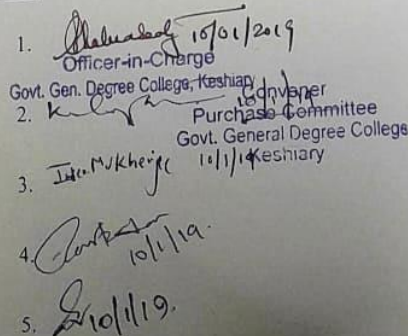 1. 10/01/2019
Officer-in-Charge
Govt. Gen. Degree College, Keshiary
Convener
2. 10/1/19
Purchase Committee
Govt. General Degree College
Keshiary
3. Mukherjee 10/1/19
4. 10/1/19.
5. 10/1/19.